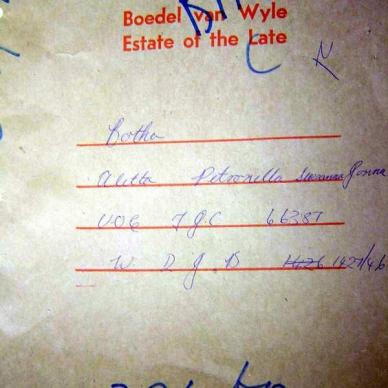 Boedel van Wyle
Estate of the Late
Botha
Aletta Petronella Susanna Jonna
VOE F J C 66387
W D J B 1426 1427/46